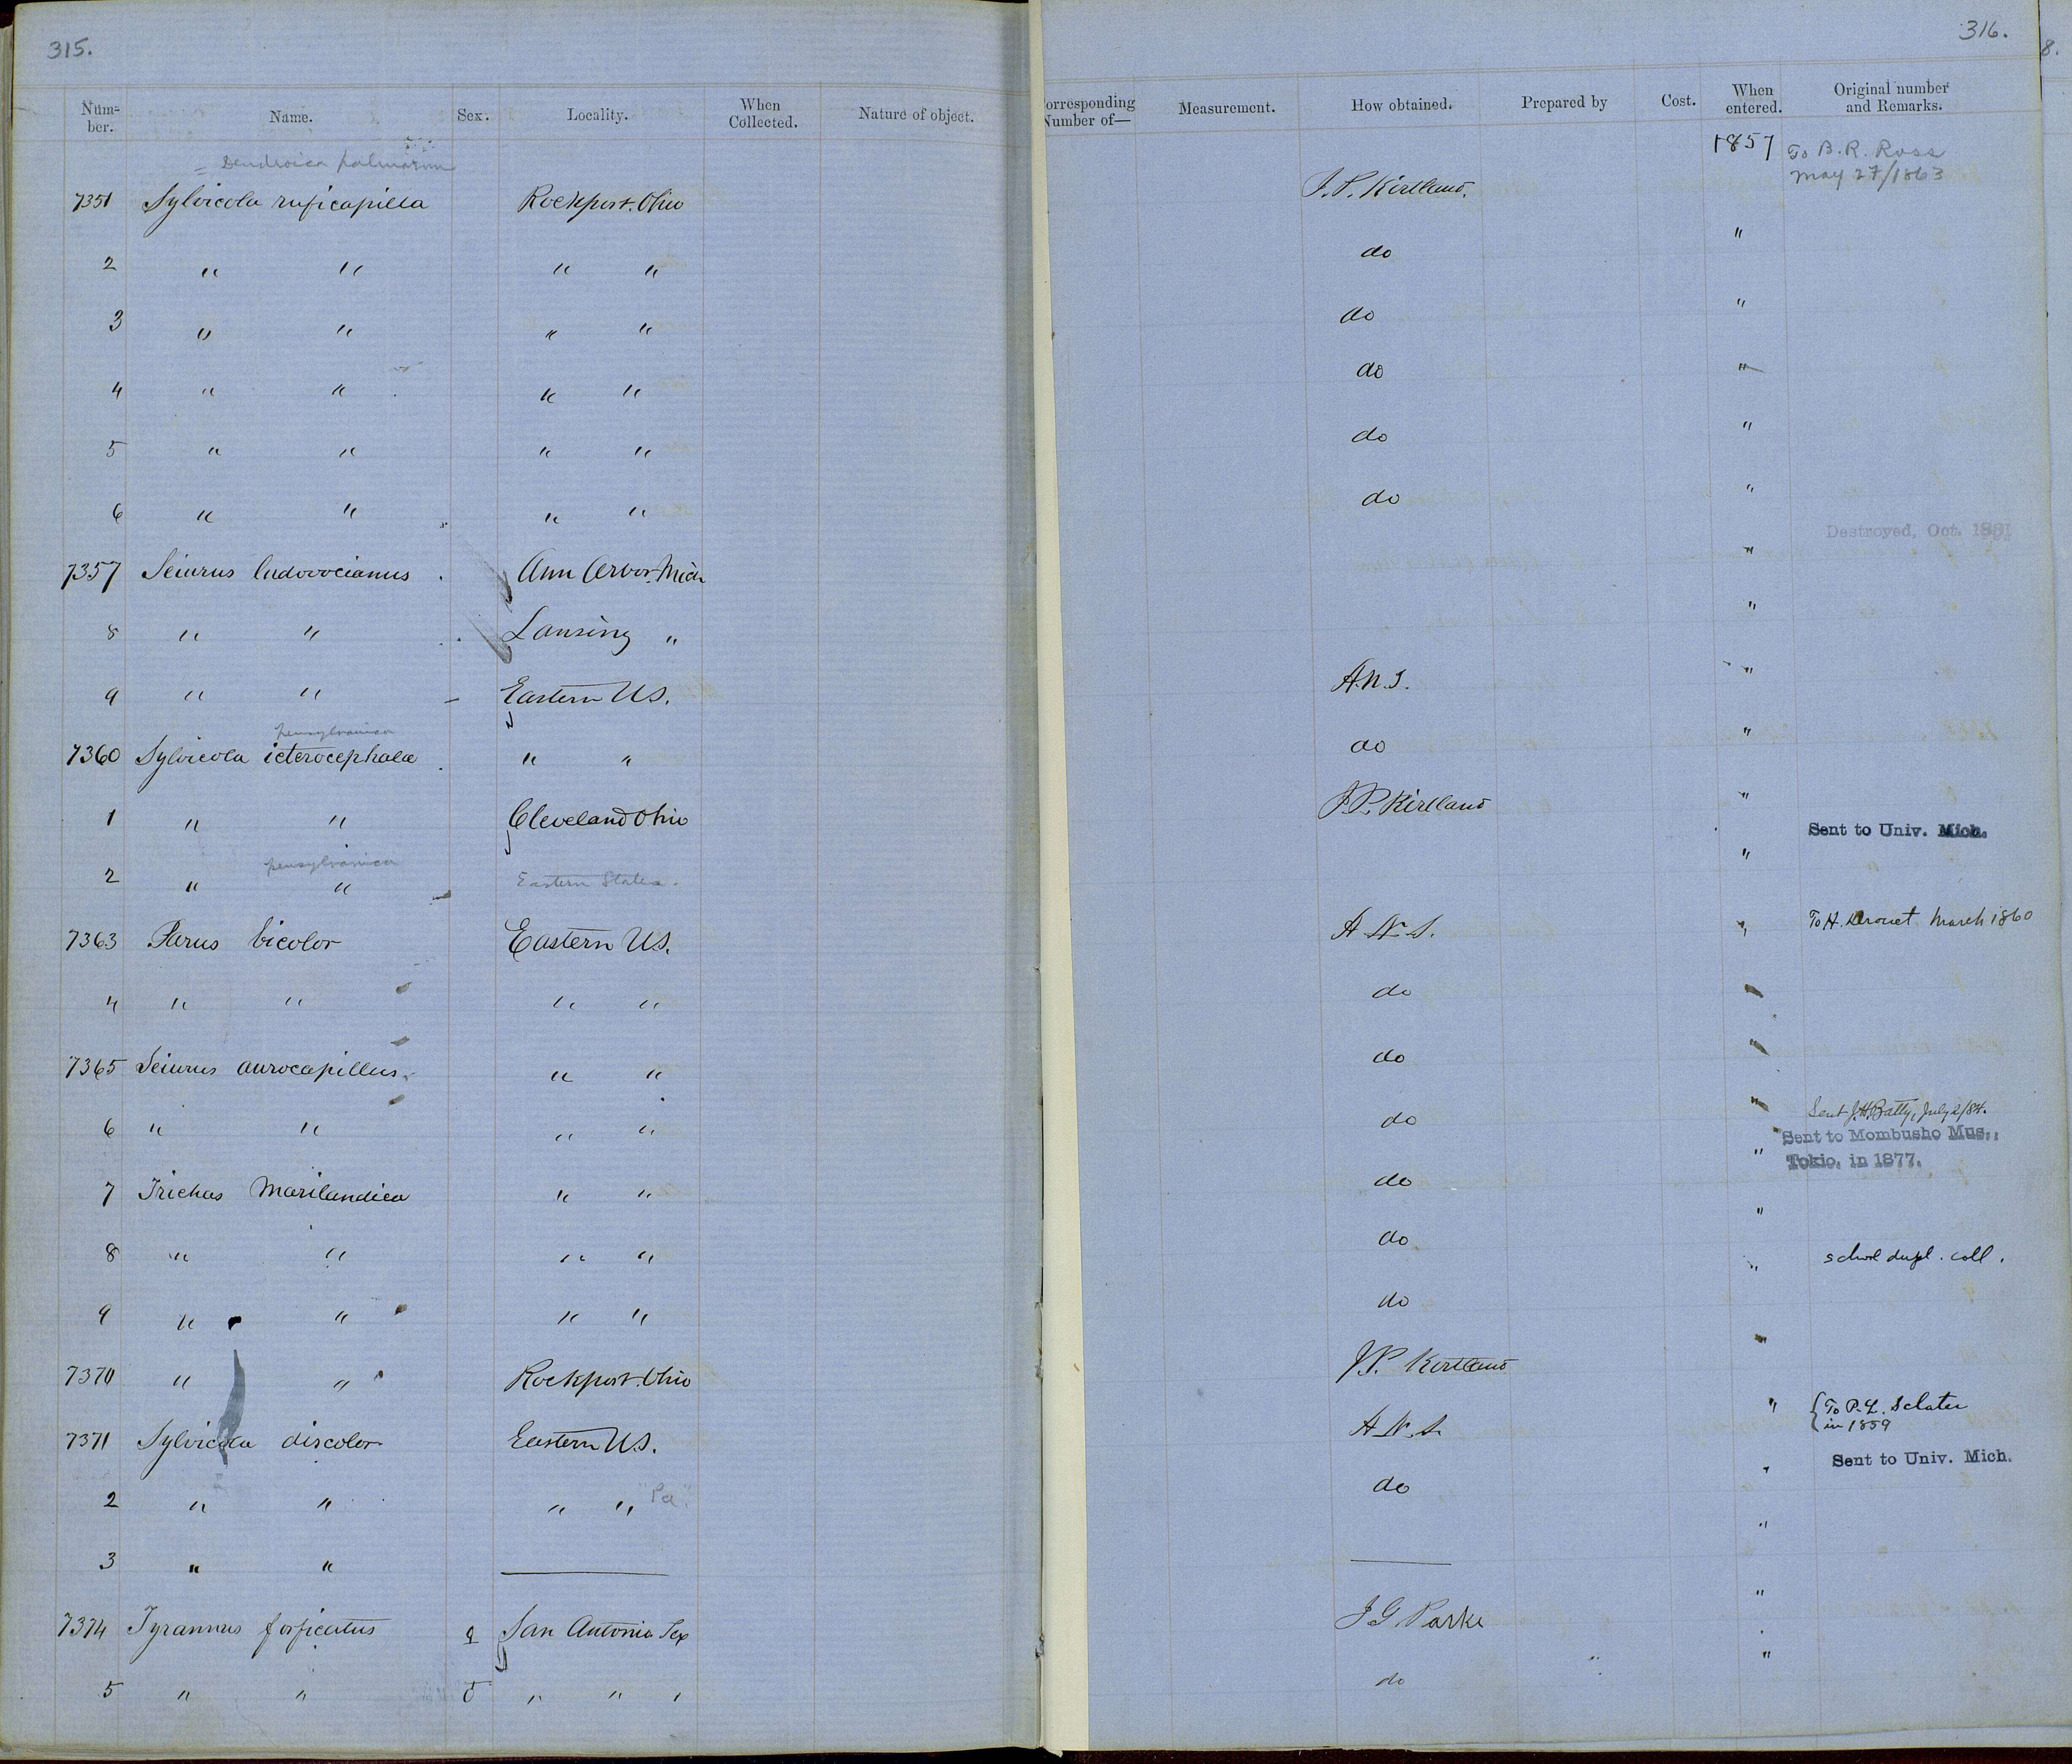 315.
Num-ber. Name. Sex. Locality. When Collected. Nature of object.
= Dendroica palmarum
7351 Sylvicola ruficapilla Rockport. Ohio
2 " " " "
3 " " " "
4 " " " "
5 " " " "
6 " " " "
7357 Seiurus ludovocianus Ann Arbor. Mich
8 " " Lansing "
9 " " Eastern U.S.
pensylvanica
7360 Sylvicola icterocephala " "
1 " " Cleveland Ohio
pensylvanica
2 " " Eastern States.
7363 Parus bicolor Eastern U.S.
4 " " " "
7365 Seiurus aurocapillus. " "
6 " " " "
7 Trichas Marilandica " "
8 " " " "
9 " " " "
7370 " " Rockport. Ohio
7371 Sylvicola discolor Eastern U.S.
2 " " " " "Pa".
3 " "
7374 Tyrannus forficatus ♀ San Antonio Tex
5 " " " " "
316.
8.
orresponding Number of— Measurement. How obtained. Prepared by Cost. When entered. Original number and Remarks.
1857 To B.R. Ross
May 27/1863
J.P. Kirtland.
do "
do "
do "
do "
do "
Destroyed, Oct. 1881
"
"
A.N.S. "
do "
J.P. Kirtland "
Sent to Univ. Mich.
"
A.N.S. " To H. Drouet March 1860
do "
do "
do " Sent J.H. Batty, July 2/84.
Sent to Mombusho Mus.,
Tokio, in 1877.
do "
do "
" school dupl. coll.
do
J.P. Kirtland "
A.N.S. " { To P.L. Sclater
in 1859
Sent to Univ. Mich.
do "
"
J G Parke "
do " "